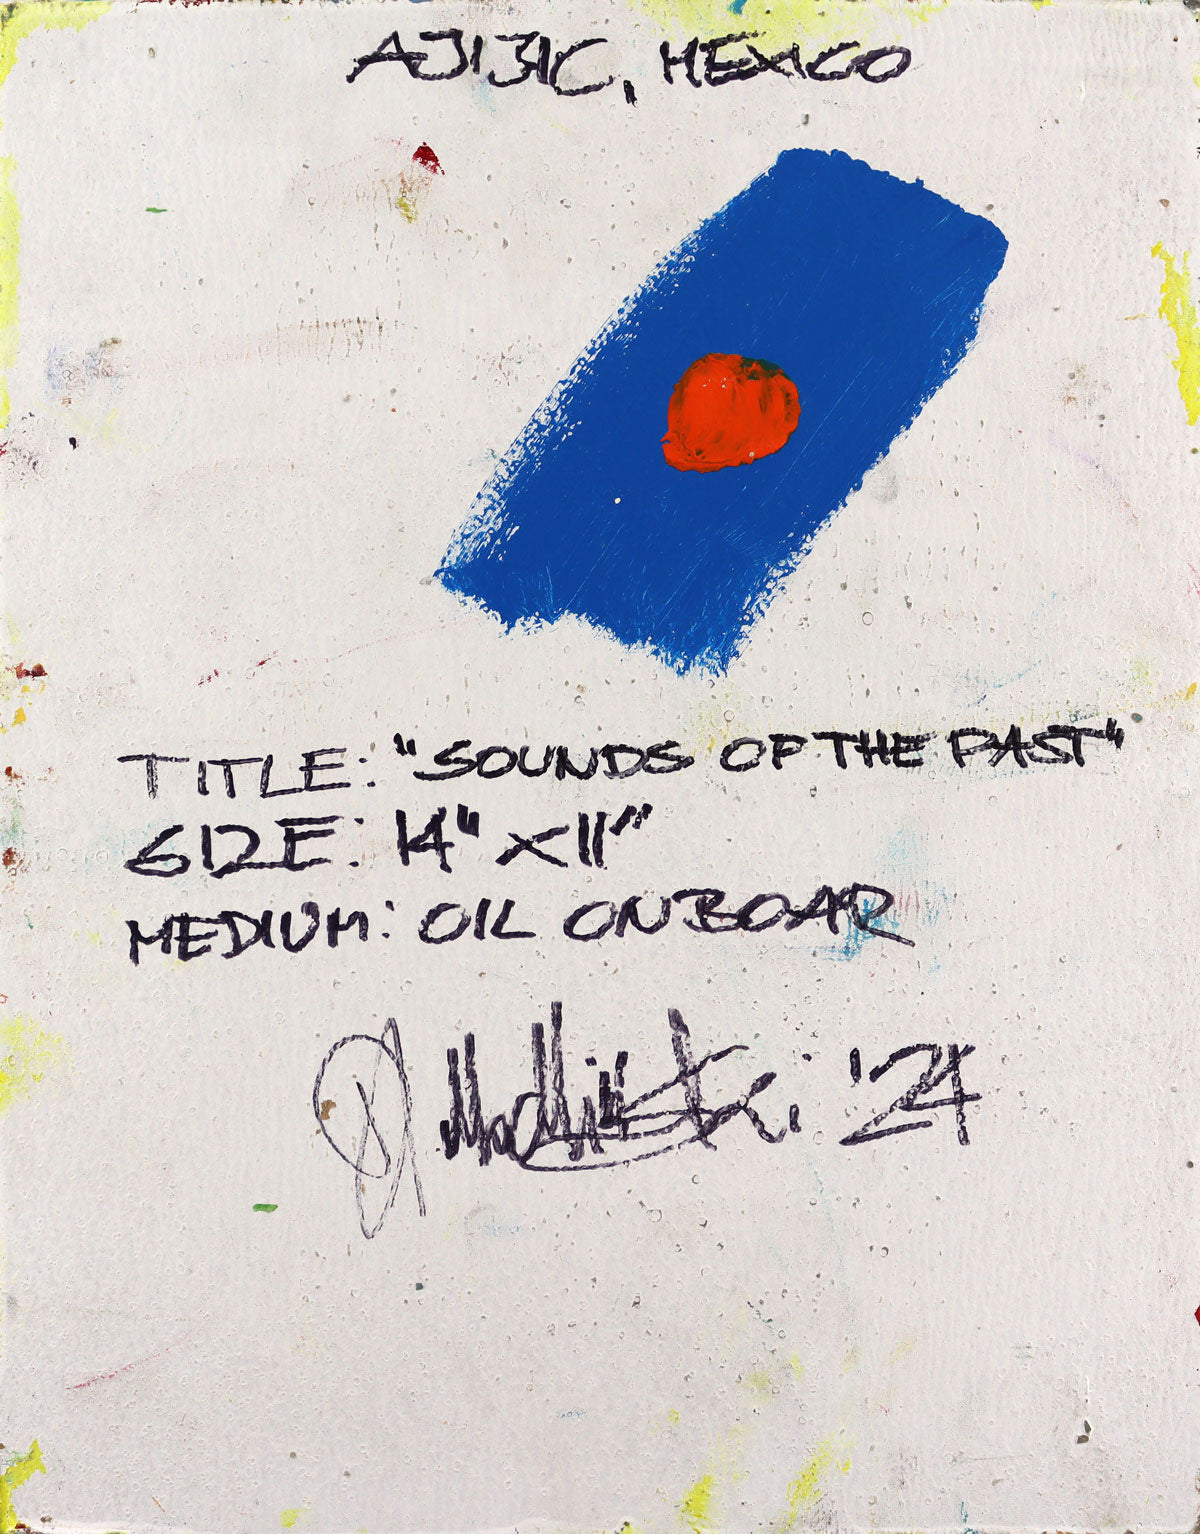 AJIJIC, MEXICO
TITLE: "SOUNDS OF THE PAST"
SIZE: 14" X 11"
MEDIUM: OIL ON BOAR
'24